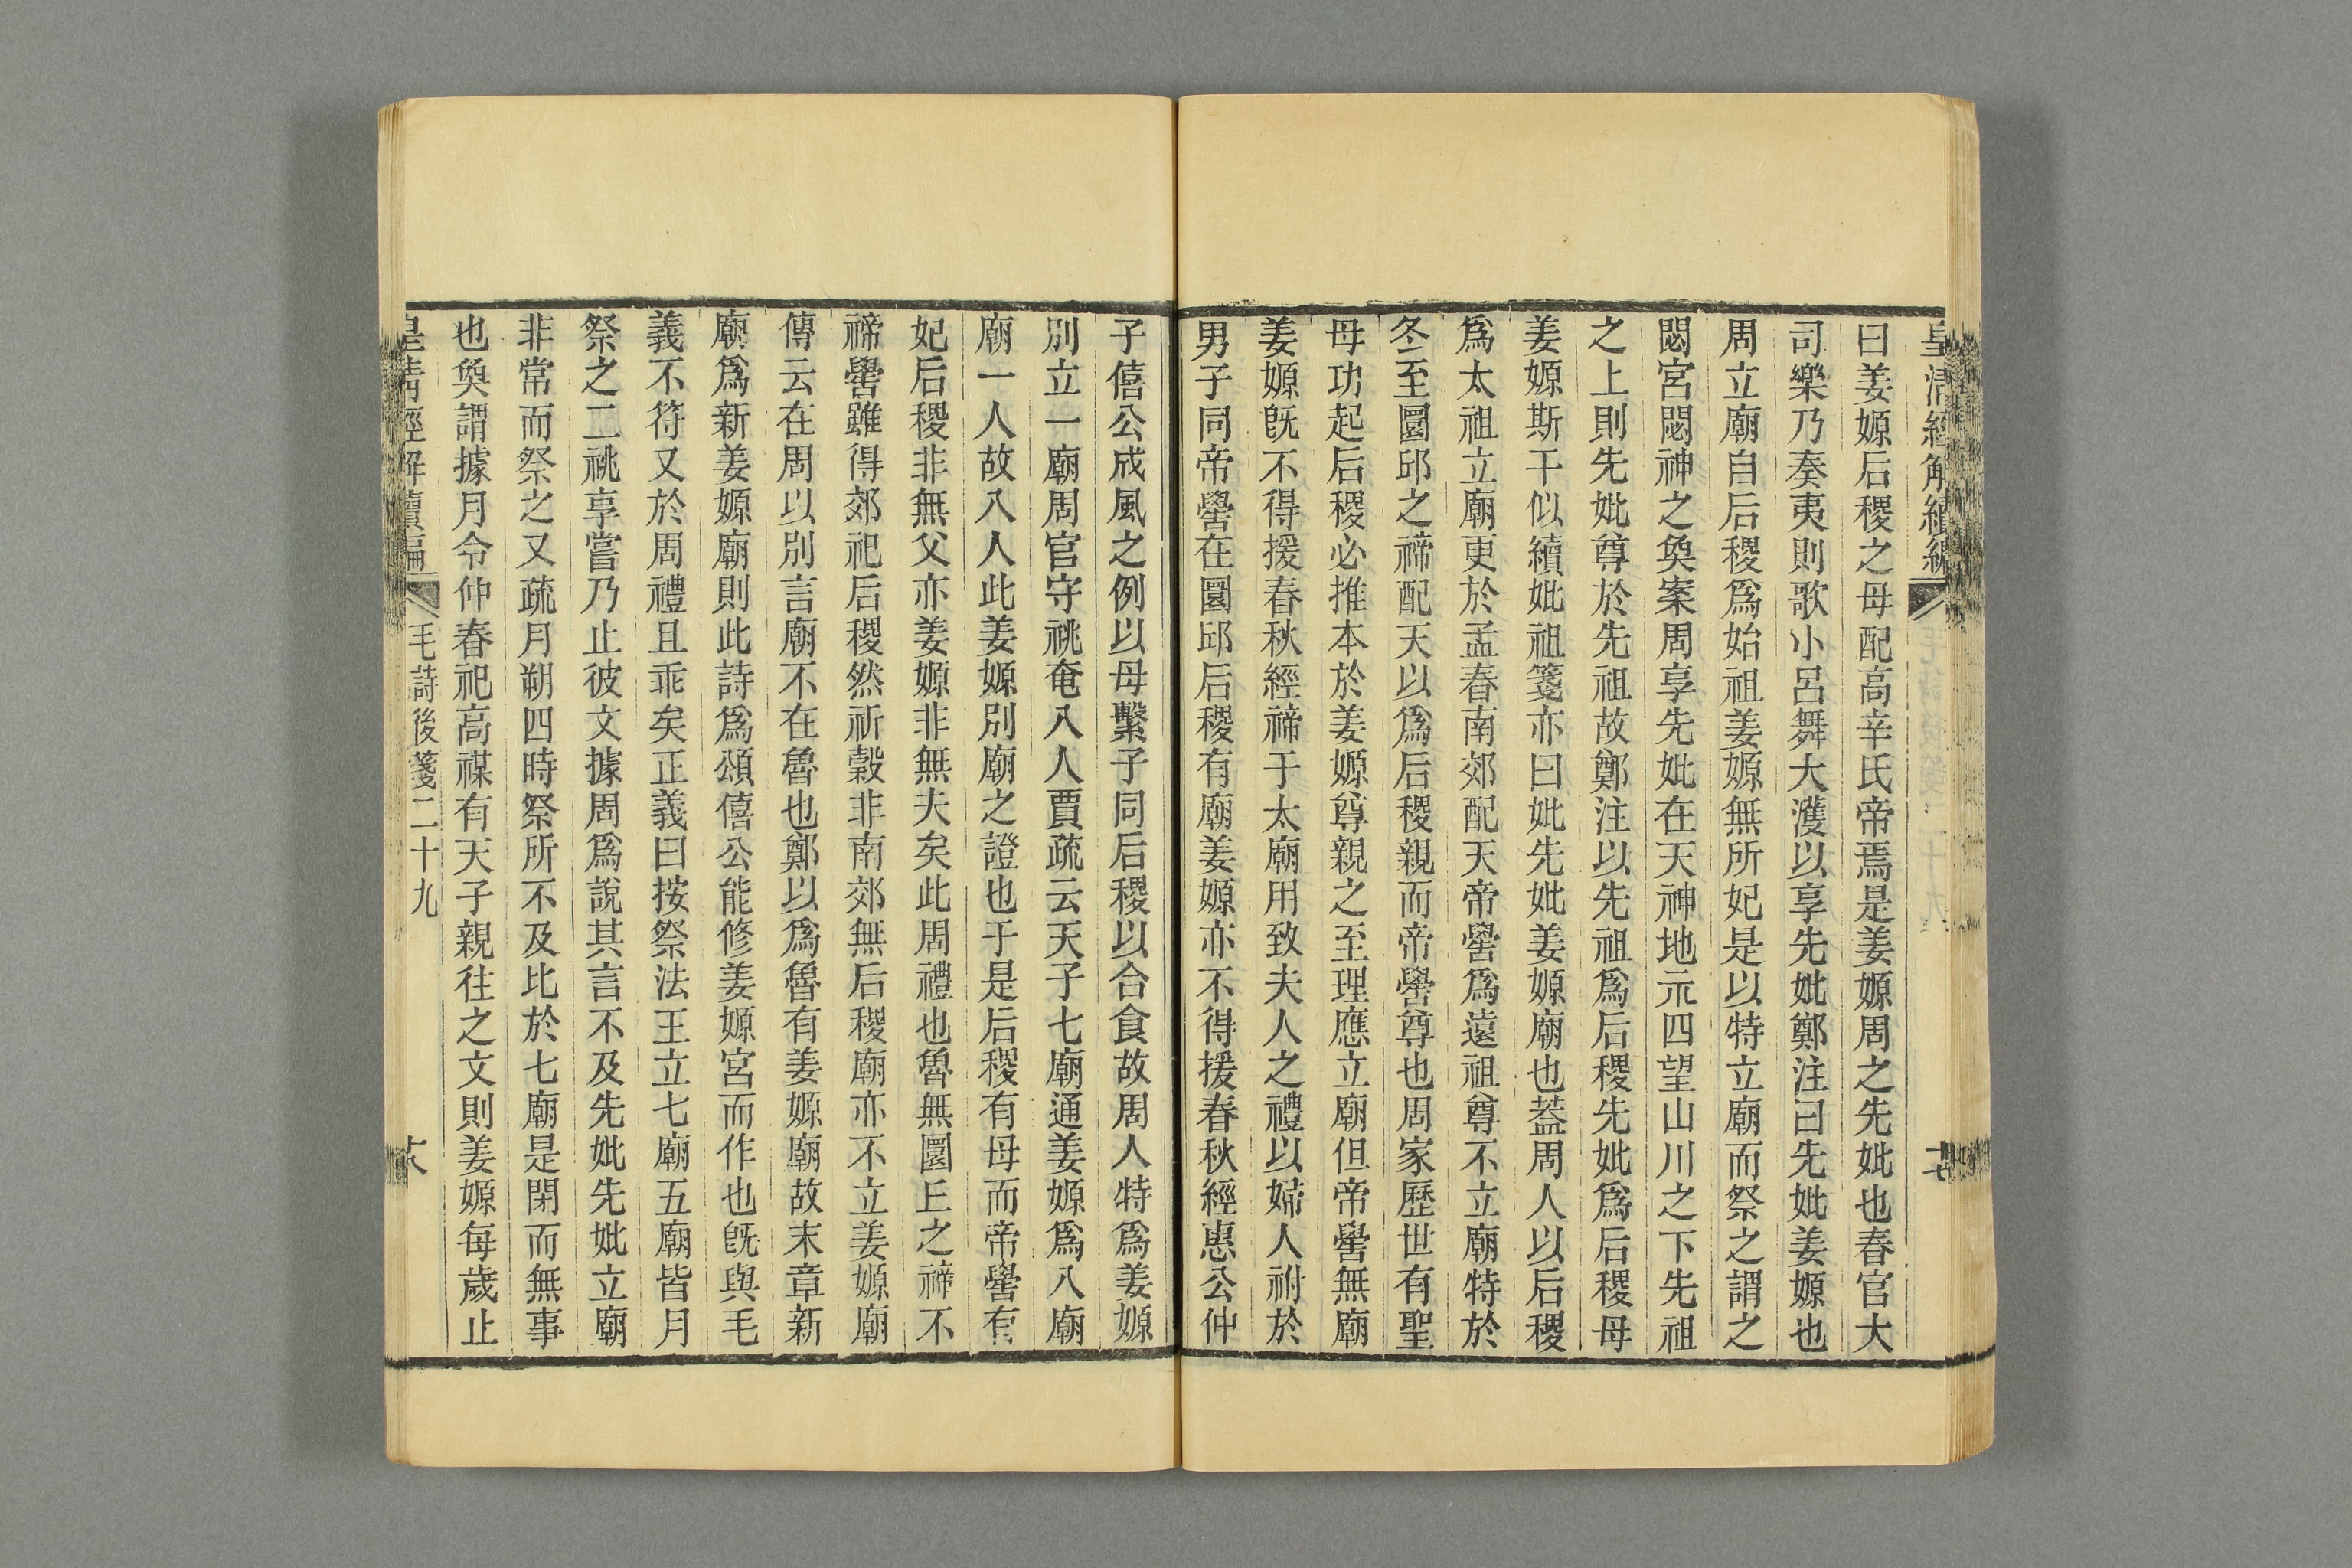 皇清經解續編
十七
曰姜嫄后稷之母配高辛氏帝焉是姜嫄周之先妣也春官大
司樂乃奏夷則歌小呂舞大濩以享先妣鄭注曰先妣姜嫄也
周立廟自后稷爲始祖姜嫄無所妃是以特立廟而祭之謂之
閟宮閟神之奐案周享先妣在天神地示四望山川之下先祖
之上則先妣尊於先祖故鄭注以先祖爲后稷先妣爲后稷母
姜嫄斯干似續妣祖箋亦曰妣先妣姜嫄廟也葢周人以后稷
爲太祖立廟更於孟春南郊配天帝嚳爲遠祖尊不立廟特於
冬至圜邱之禘配天以爲后稷親而帝嚳尊也周家歷世有聖
母功起后稷必推本於姜嫄尊親之至理應立廟但帝嚳無廟
姜嫄旣不得援春秋經禘于太廟用致夫人之禮以婦人祔於
男子同帝嚳在圜邱后稷有廟姜嫄亦不得援春秋經惠公仲
子僖公成風之例以母繫子同后稷以合食故周人特爲姜嫄
別立一廟周官守祧奄八人賈疏云天子七廟通姜嫄爲八廟
廟一人故八人此姜嫄別廟之證也于是后稷有母而帝嚳有
妃后稷非無父亦姜嫄非無夫矣此周禮也魯無圜丘之禘不
禘嚳雖得郊祀后稷然祈穀非南郊無后稷廟亦不立姜嫄廟
傳云在周以別言廟不在魯也鄭以爲魯有姜嫄廟故末章新
廟爲新姜嫄廟則此詩爲頌僖公能修姜嫄宮而作也旣與毛
義不符又於周禮且乖矣正義曰按祭法王立七廟五廟皆月
祭之二祧享嘗乃止彼文據周爲說其言不及先妣先妣立廟
非常而祭之又疏月朔四時祭所不及比於七廟是閉而無事
也奐謂據月令仲春祀高禖有天子親往之文則姜嫄每歲止
皇清經解續編
毛詩後箋二十九
十八